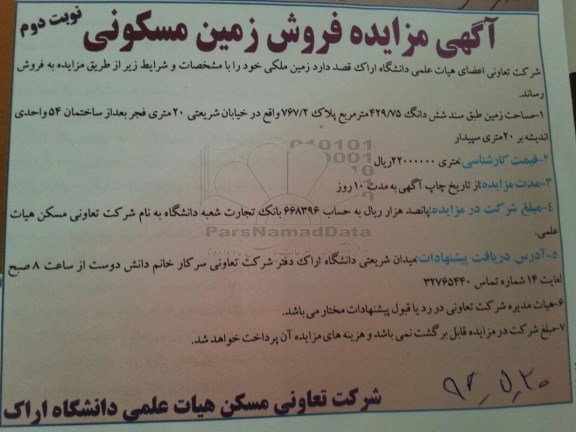 آگهی مزایده فروش زمین مسکونی نوبت دوم
شرکت تعاونی اعضای هیات علمی دانشگاه اراک قصد دارد زمین ملکی خود را با مشخصات و شرایط زیر از طریق مزایده به فروش
رساند.
۱-مساحت زمین طبق سند شش دانگ ۴۲۹/۷۵مترمربع پلاک ۷۶۷/۲ واقع در خیابان شریعتی ۲۰متری فجر بعداز ساختمان ۵۴ واحدی
اندیشه بر ۲۰متری سپیدار
۲-قیمت کارشناسی:متری ۲۲۰۰۰۰۰۰ریال
۳-مدت مزایده:از تاریخ چاپ آگهی به مدت ۱۰ روز
۴-مبلغ شرکت در مزایده:پانصد هزار ریال به حساب ۶۶۸۳۹۶ بانک تجارت شعبه دانشگاه به نام شرکت تعاونی مسکن هیات
علمی.
ParsNamadData
۵-آدرس دریافت پیشنهادات:میدان شریعتی دانشگاه اراک دفتر شرکت تعاونی سرکار خانم دانش دوست از ساعت ۸ صبح
لغایت ۱۴ شماره تماس ۳۲۷۶۵۴۴۰
۶-هیات مدیره شرکت تعاونی در رد یا قبول پیشنهادات مختار می باشد.
۷-مبلغ شرکت در مزایده قابل برگشت نمی باشد و هزینه های مزایده آن پرداخت خواهد شد.
شرکت تعاونی مسکن هیات علمی دانشگاه اراک